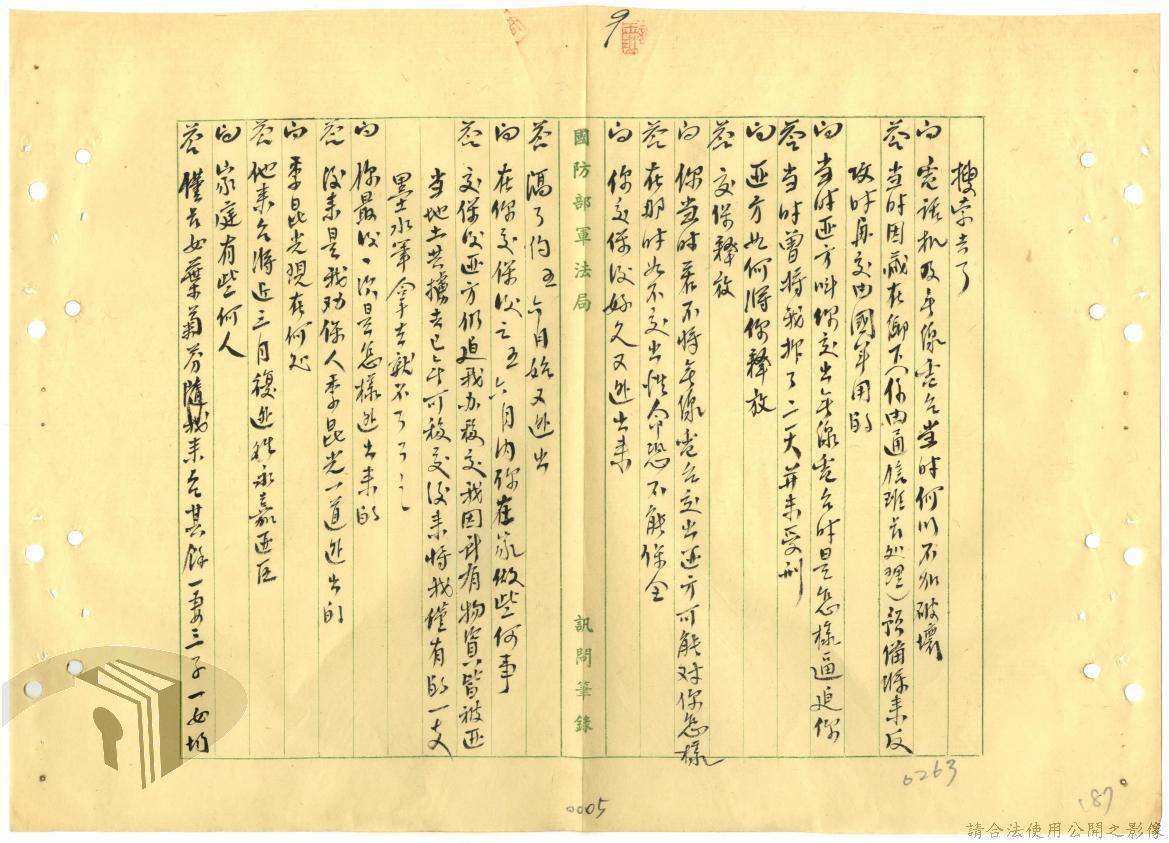 9
搜索去了
問 電話机及無線電台當時何以不加破壞
答 当时因藏在鄉下(係由通信班去处理)預備將来反
攻时再交由國軍用的
問 当时匪方叫你交出無線電台时是怎樣逼迫你
答 当时曾將我押了二天并未受刑
問 匪方如何將你釋放
答 交保釋放
問 你當时若不將無線電台交出匪方可能对你怎樣
答 在那时如不交出性命恐不能保全
問 你交保後好久又逃出来
國防部軍法局 訊問筆錄
答 隔了約五六月始又逃出
問 在你交保後之五六月内你在家做些何事
答 交保後匪方仍迫我办移交我因所有物資皆被匪
当地土共擄去已無可移交後来將我僅有的一支
墨水筆拿去就不了了之
問 你最後一次是怎樣逃出来的
答 後来是我劝保人季昆光一道逃出的
問 季昆光現在何处
答 他来台將近三月複返往永嘉匪区
問 家庭有些何人
答 僅長女葉菊芬隨我来台其餘一妻三子一女均
0263
0005
187
請合法使用公開之影像